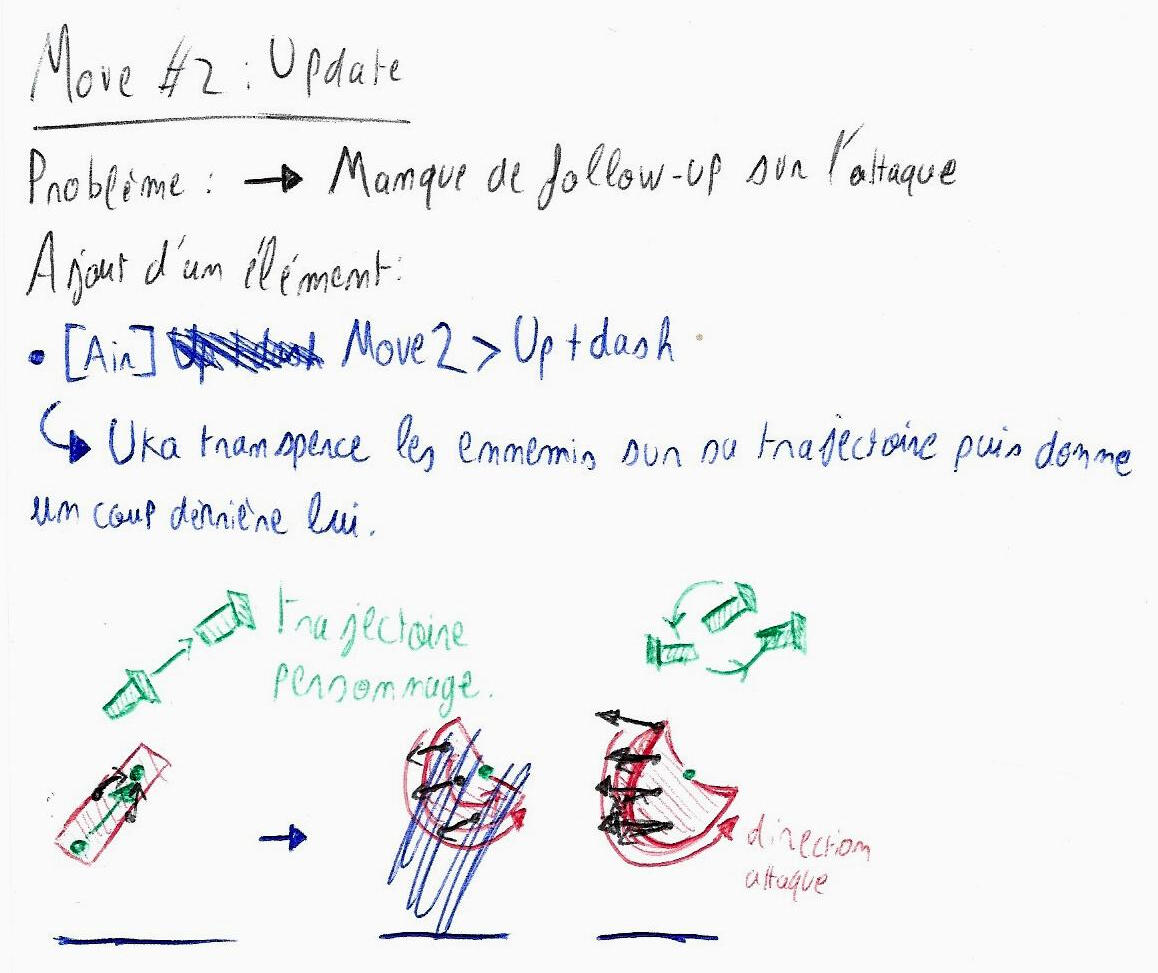 Move #2 : Update
Problème : → Manque de follow-up sur l'attaque
Ajout d'un élément :
• [Air] Move 2 > Up + dash
↳ Uka transperce les ennemis sur sa trajectoire puis donne
un coup derrière lui.
trajectoire
personnage.
direction
attaque